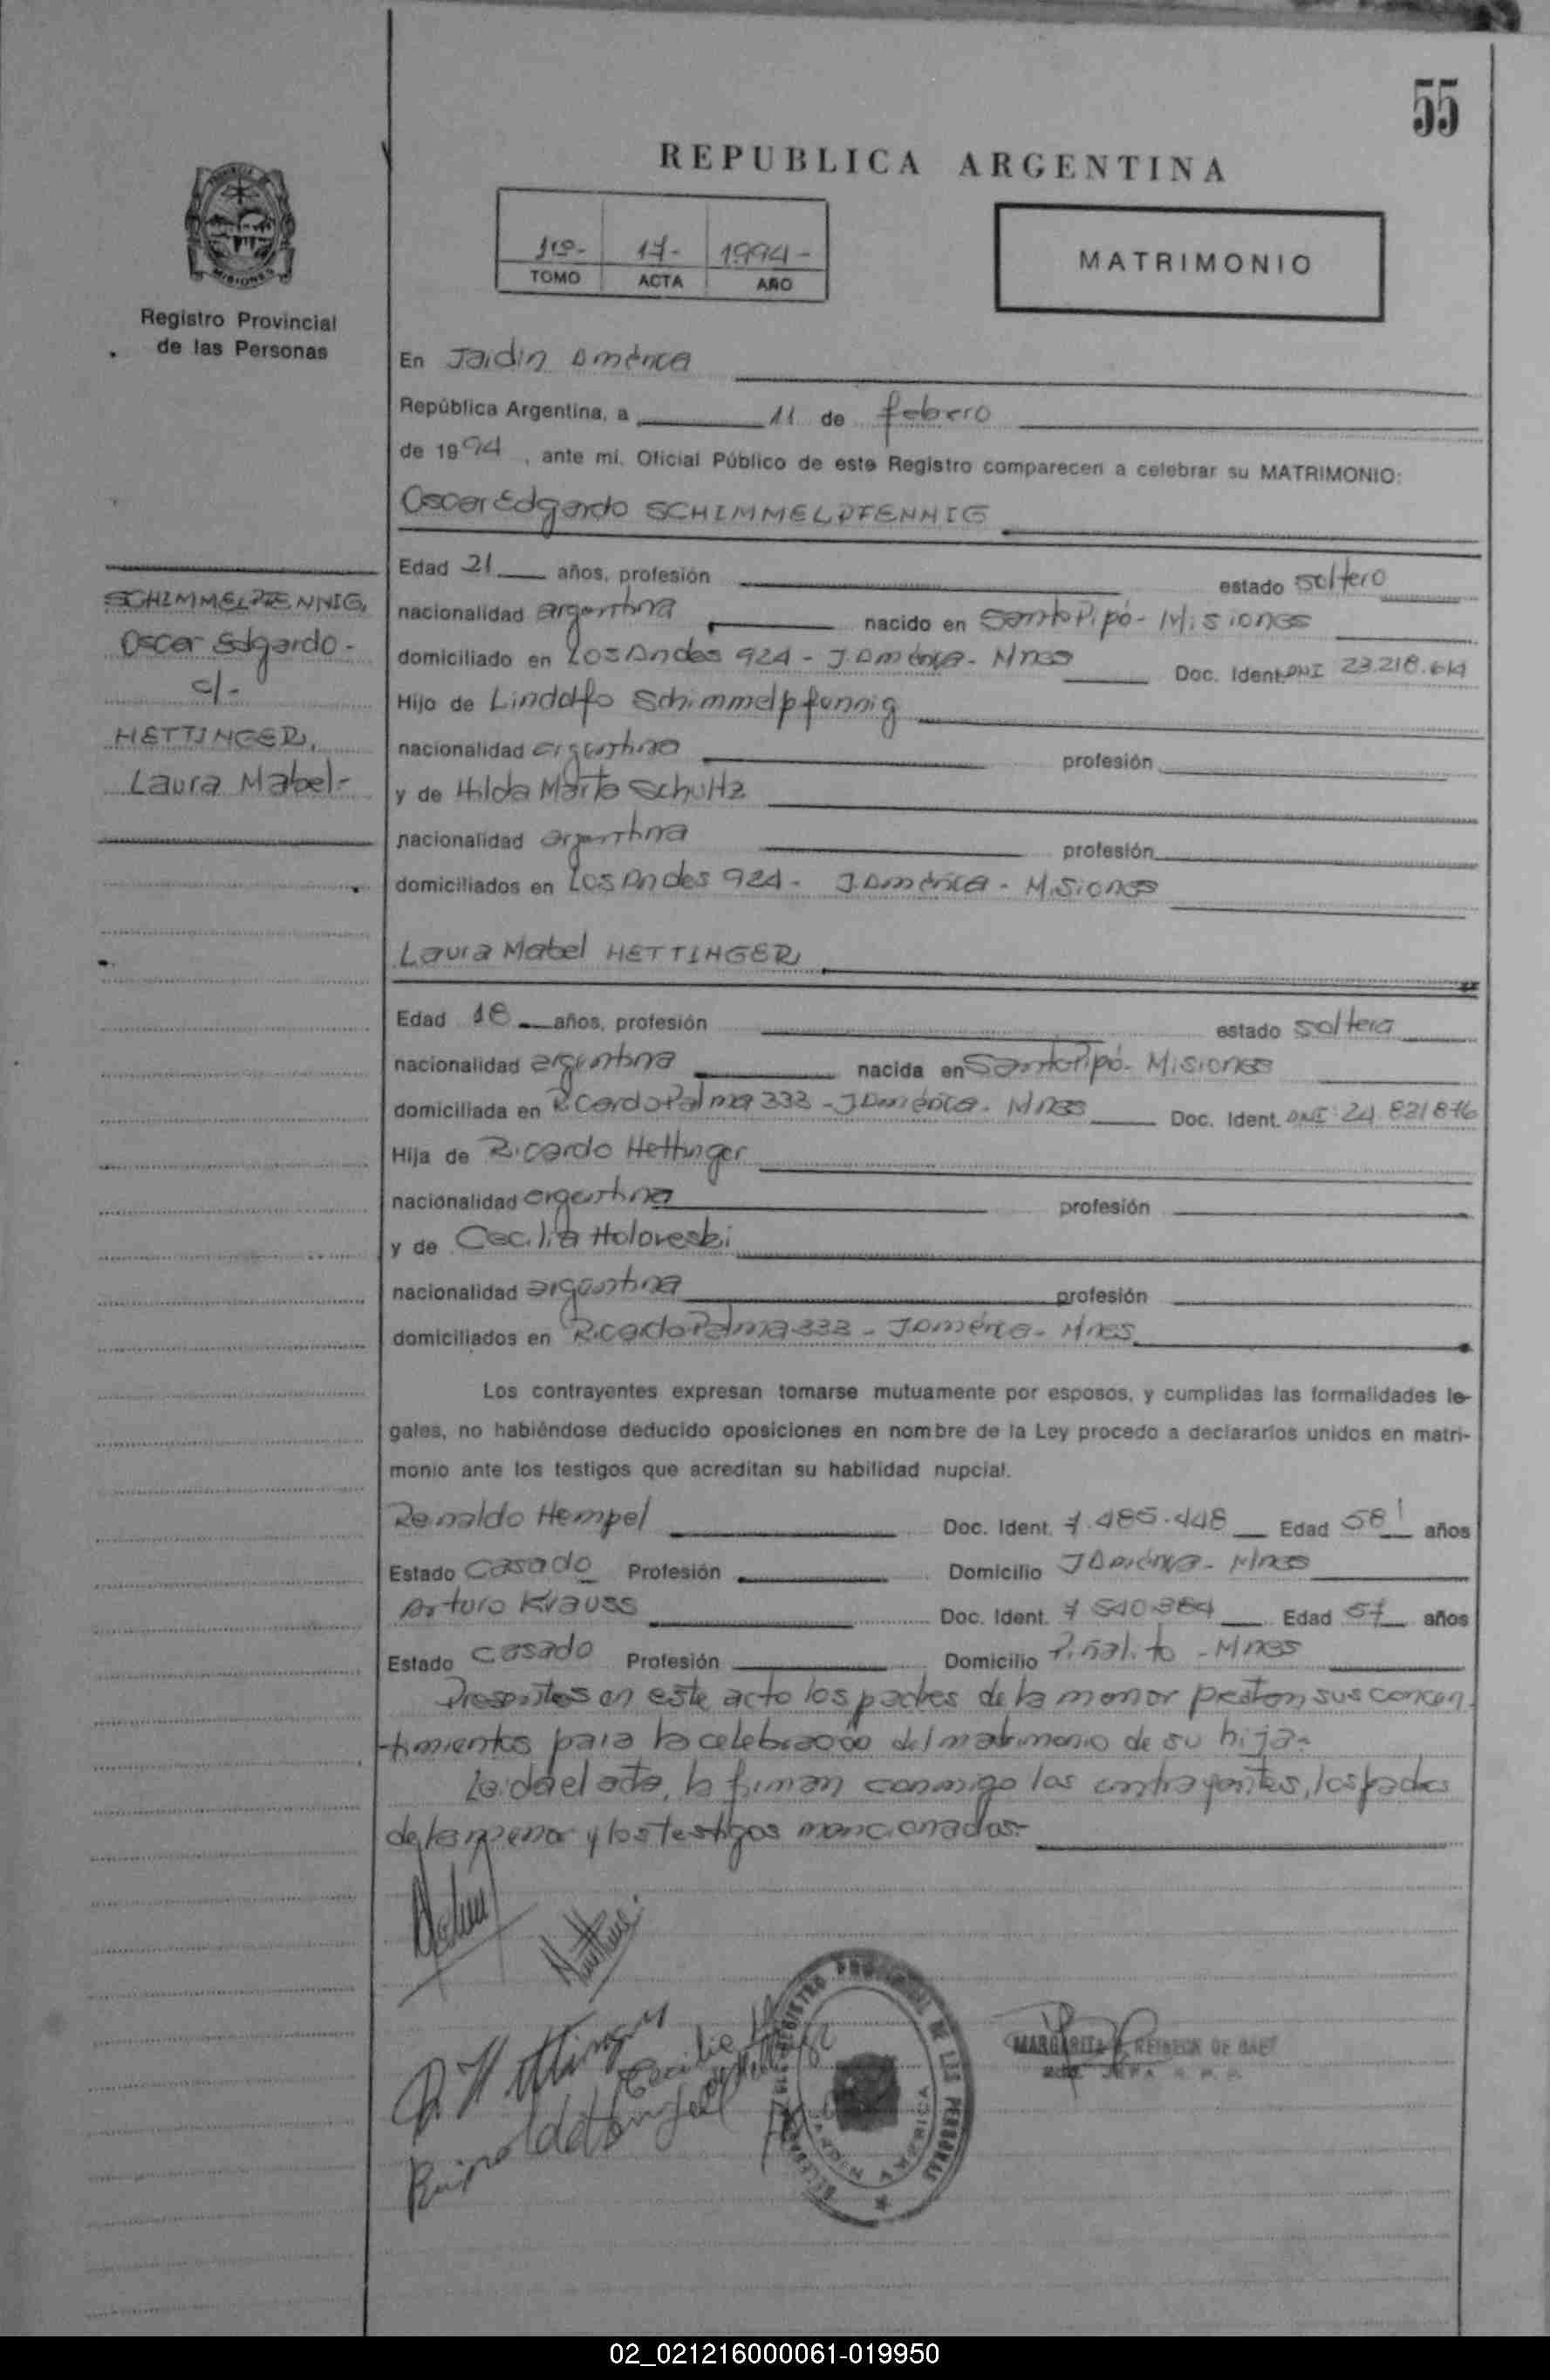 55
REPUBLICA ARGENTINA
1º- 17- 1994-
TOMO ACTA AÑO
MATRIMONIO
MISIONES
Registro Provincial
de las Personas
En Jardin América
República Argentina, a 11 de febrero
de 1994, ante mí, Oficial Público de este Registro comparecen a celebrar su MATRIMONIO:
Oscar Edgardo SCHIMMELPFENNIG
SCHIMMELPFENNIG,
Oscar Edgardo-
c/-
HETTINGER,
Laura Mabel-
Edad 21 años, profesión estado soltero
nacionalidad argentina nacido en Santo Pipó- Misiones
domiciliado en Los Andes 924 - J. América - Mnes Doc. Ident. DNI 23.218.614
Hijo de Lindolfo Schimmelpfennig
nacionalidad argentino profesión
y de Hilda Marta Schultz
nacionalidad argentina profesión
domiciliados en Los Andes 924 - J. América - Misiones
Laura Mabel HETTINGER
Edad 18 años, profesión estado soltera
nacionalidad argentina nacida en Santo Pipó- Misiones
domiciliada en Ricardo Palma 333 - J América - Mnes Doc. Ident. DNI 24 821876
Hija de Ricardo Hettinger
nacionalidad argentina profesión
y de Cecilia Holoveski
nacionalidad argentina profesión
domiciliados en Ricardo Palma 333 - J América - Mnes
Los contrayentes expresan tomarse mutuamente por esposos, y cumplidas las formalidades le-
gales, no habiéndose deducido oposiciones en nombre de la Ley procedo a declararlos unidos en matri-
monio ante los testigos que acreditan su habilidad nupcial.
Renaldo Hempel Doc. Ident. 7.485.448 Edad 58 años
Estado Casado Profesión Domicilio J América - Mnes
Arturo Krauss Doc. Ident. 7 540 384 Edad 57 años
Estado Casado Profesión Domicilio Piñalito - Mnes
Presentes en este acto los padres de la menor prestan sus concen-
timientos para la celebración del matrimonio de su hija-
Leida el acta, la firman conmigo los contrayentes, los padres
de la menor y los testigos mencionados-
R. Hettinger
Cecilia H de Hettinger
Reinoldo Hempel
REGISTRO PROVINCIAL DE LAS PERSONAS
MARGARITA DE
02_021216000061-019950